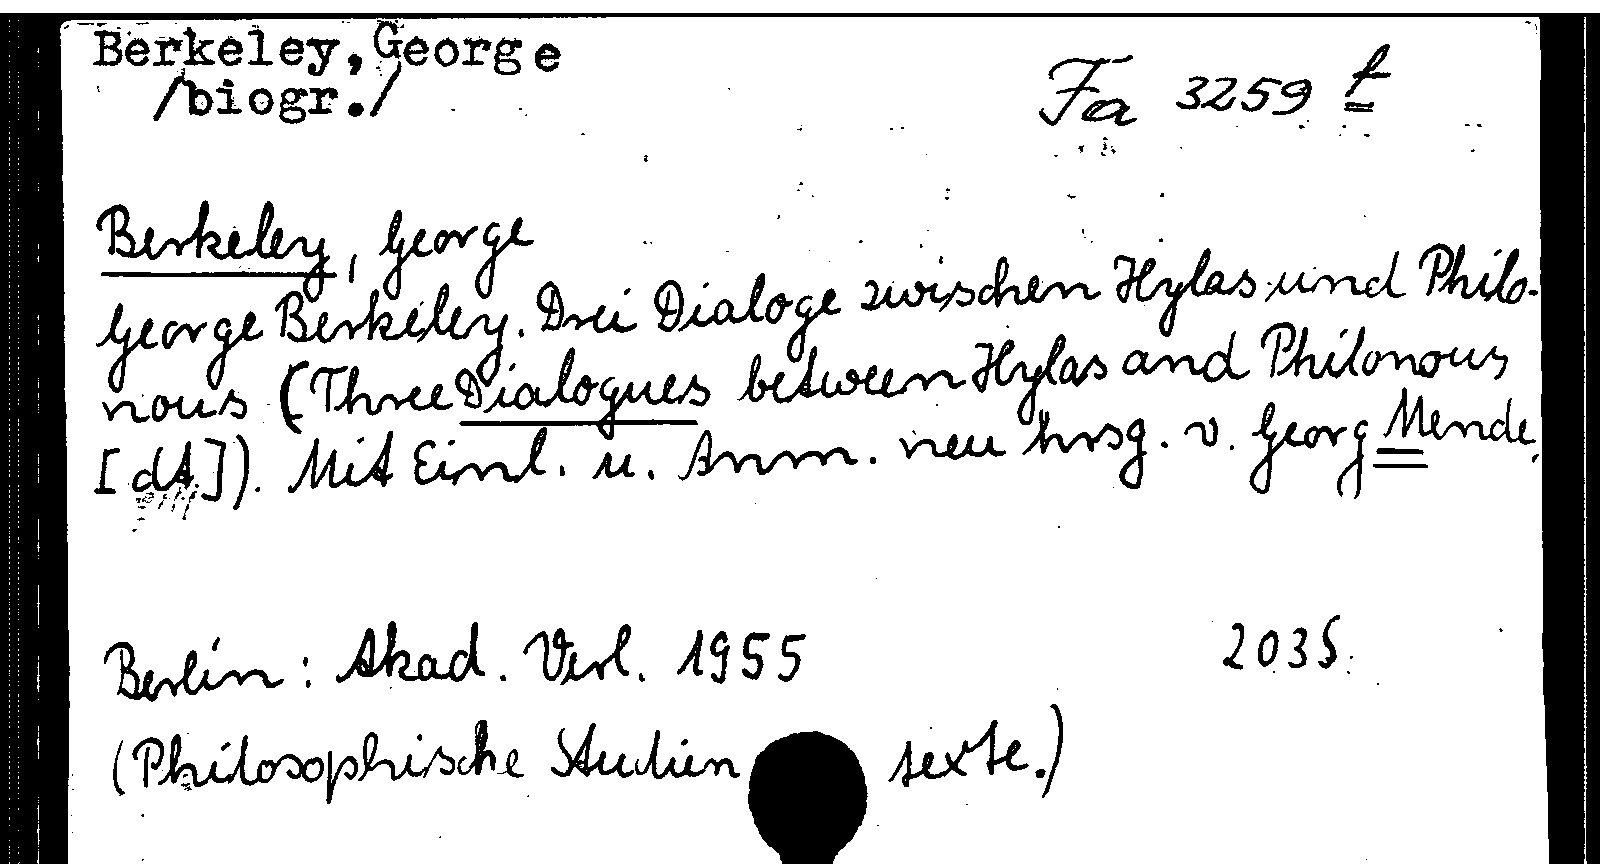 Berkeley, George
/biogr./
Fa 3259 f
Berkeley, George
George Berkeley. Drei Dialoge zwischen Hylas und Philo-
nous (Three Dialogues between Hylas and Philonous
[dt.]). Mit Einl. u. Anm. neu hrsg. v. Georg Mende.
Berlin: Akad. Verl. 1955
203 S.
(Philosophische Studien texte.)